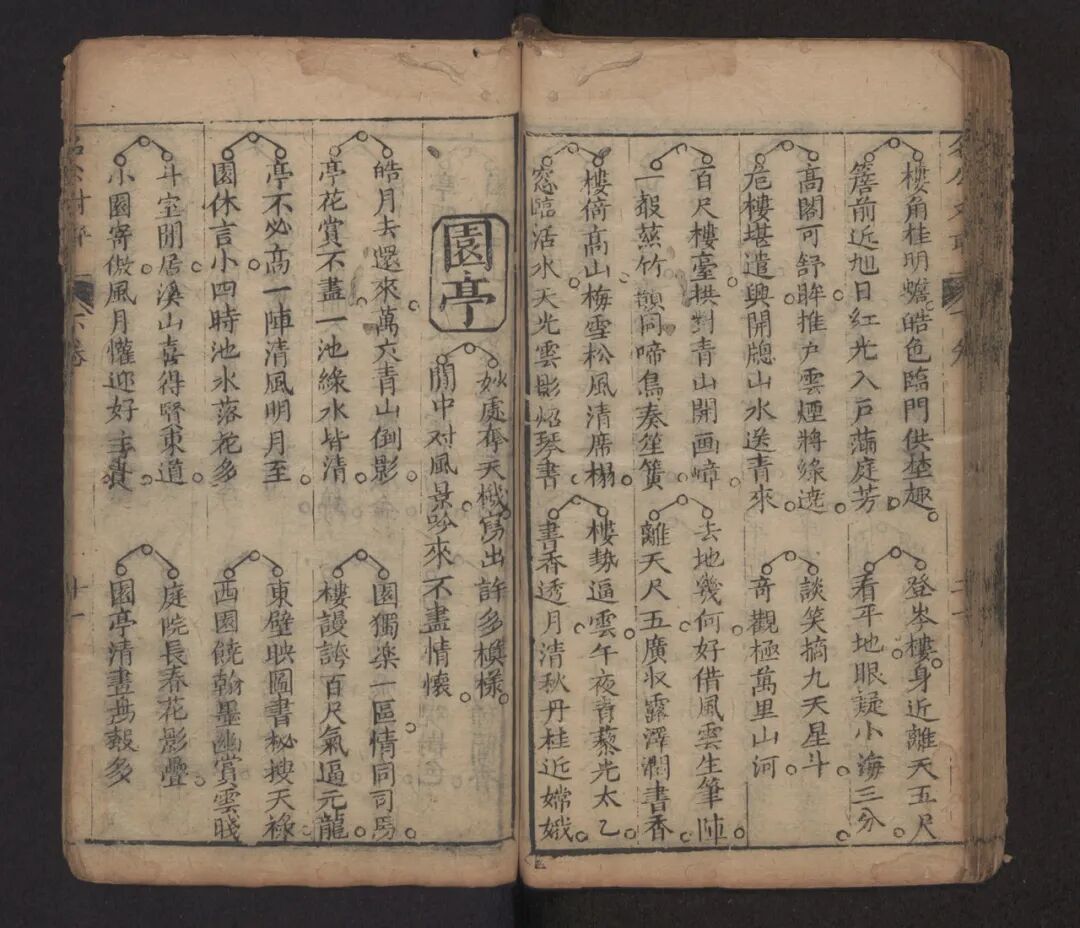 樓角桂明蟾皓色臨門供埜趣
簷前近旭日紅光入戸滿庭芳
登岑樓身近離天五尺
看平地眼疑小海三分
高閣可舒眸推户雲煙將綠遶
危樓堪遣興開牕山水送青來
談笑摘九天星斗
奇觀極萬里山河
百尺樓臺拱對青山開画嶂
一叢慈竹 同啼鳥奏笙簧
去地幾何好借風雲生筆陣
離天尺五廣収露澤潤書香
樓倚高山梅雪松風清席榻
窓臨活水天光雲影焰琴書
樓勢逼雲午夜青藜光太乙
書香透月清秋丹桂近嫦娥
園亭
妙處奪天機寫出許多模樣
閒中对風景吟來不盡情懷
皓月去還來萬六青山倒影
亭花賞不盡一池綠水皆清
園獨楽一區情同司馬
樓謾誇百尺氣逼元龍
亭不必高一陣清風明月至
園休言小四時池水落花多
東壁映圖書秘搜天祿
西園饒翰墨幽賞雲牋
斗室閒居溪山喜得賢東道
小園寄傲風月懽迎好主賓
庭院長春花影疊
園亭清晝 多